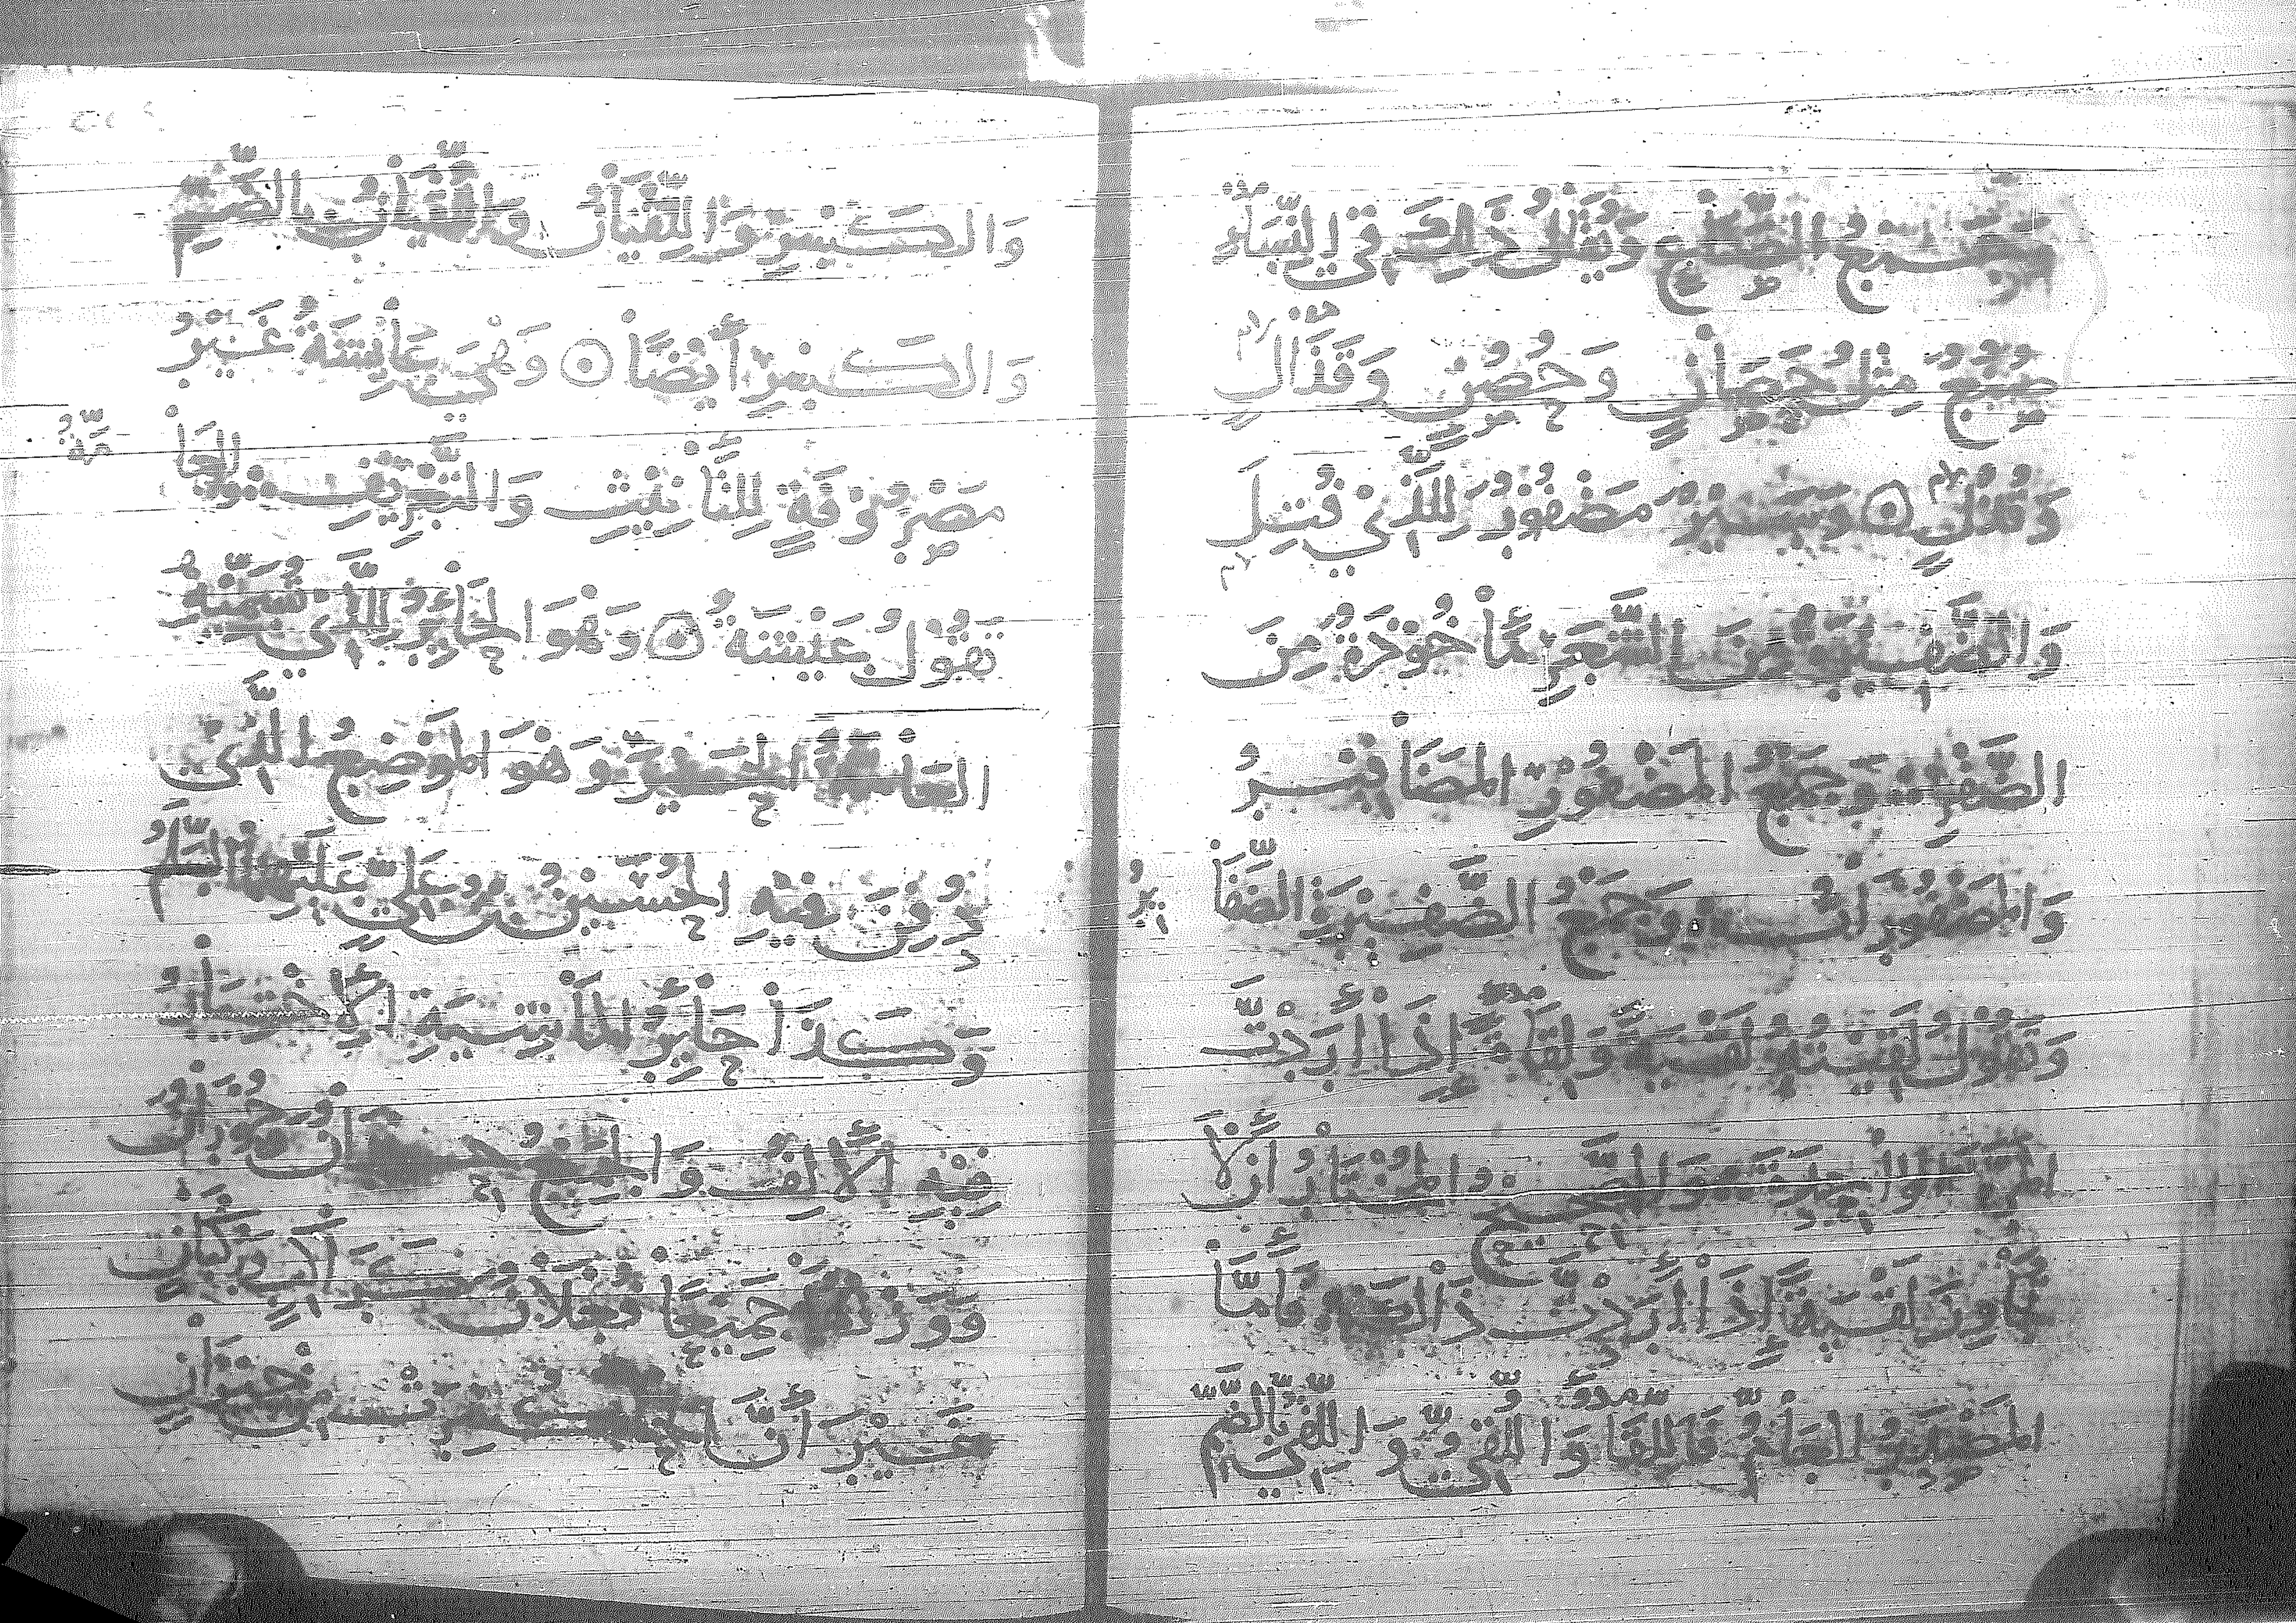 جمع الضنع ومثل ذلك في النساء
صنع مثل حصان وحصن وقذال
وقذل ۞ وسير مضفور للذي فتل
والضفيرة من الشعر مأخوذة من
الضفر وجمع المضفور المضافير
والمضفورات وجمع الضفيرة الضفا
ير
وتقول لقيته لقية ولقاءة إذا أردت
المرة الواحدة هو الصحيح والمختار أن لا
يجاوز لقية إذا أردت ذا المعنى فأما
المصدر العام فاللقاء واللقي واللقي بالضم
والكسر واللقيان واللقيان بالضم
والكسر أيضا ۞ وهي عائشة غير
مصروفة للتأنيث والتعريف والعا
مة
تقول عيشة ۞ وهو الحائر للذي تسميه
العامة الحير وهو الموضع الذي
دفن فيه الحسين بن علي عليهما السلم
وكذا حائر الماشية الاختيار
فيه الألف والجمع حيران وحوران
ووزنهما جميعا فعلان
غير أن